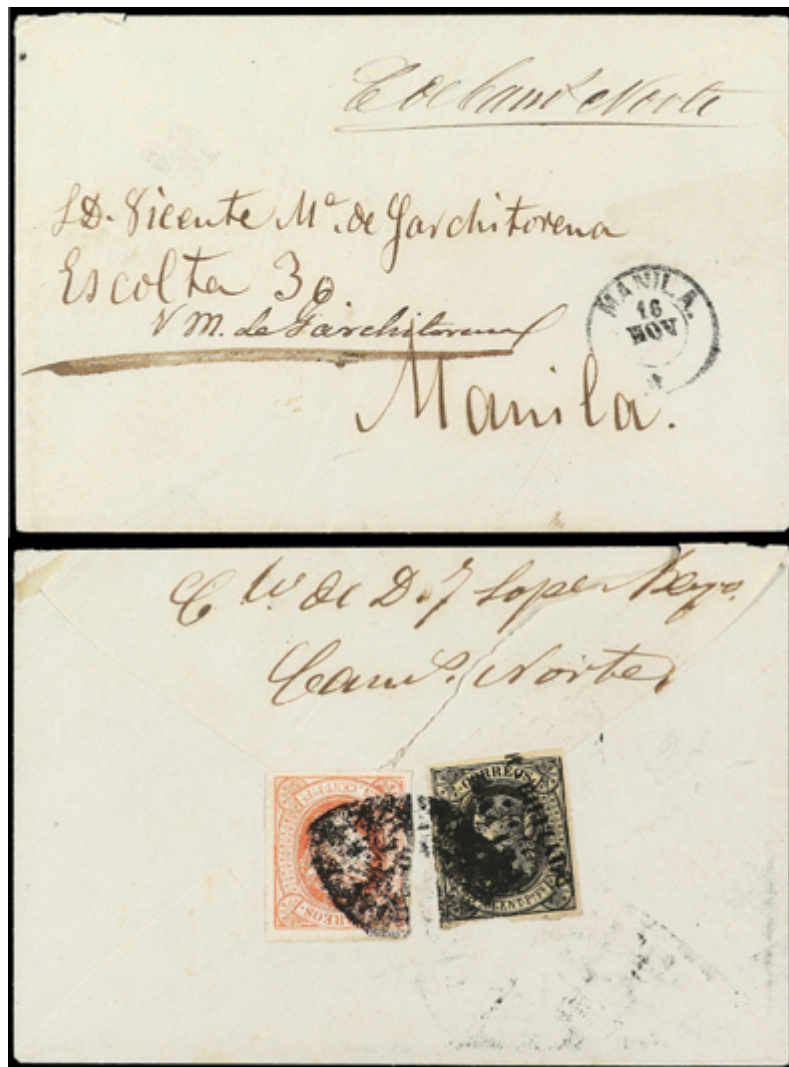 C de Cam.s Norte
S D. Vicente M.a de Garchitorena
Escolta 30
V M. de Garchitorena
Manila.
MANILA.
16
NOV
de D. J Lope
Cam.s Norte
CORREOS
CORREOS